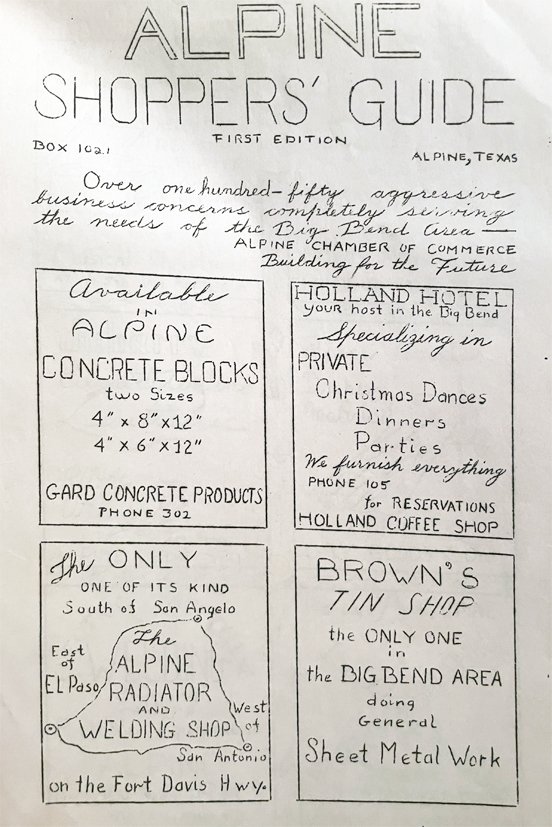 ALPINE
SHOPPERS' GUIDE
FIRST EDITION
BOX 1021
ALPINE, TEXAS
Over one hundred-fifty aggressive
business concerns completely serving
the needs of the Big Bend Area —
ALPINE CHAMBER OF COMMERCE
Building for the Future
Available
IN
ALPINE
CONCRETE BLOCKS
two Sizes
4" x 8" x 12"
4" x 6" x 12"
GARD CONCRETE PRODUCTS
PHONE 302
HOLLAND HOTEL
your host in the Big Bend
Specializing in
PRIVATE
Christmas Dances
Dinners
Parties
We furnish everything
PHONE 105
for RESERVATIONS
HOLLAND COFFEE SHOP
The ONLY
ONE OF ITS KIND
South of San Angelo
East
of
El Paso
The
ALPINE
RADIATOR
AND
WELDING SHOP
West
of
San Antonio
on the Fort Davis Hwy.
BROWN'S
TIN SHOP
the ONLY ONE
in
the BIG BEND AREA
doing
General
Sheet Metal Work